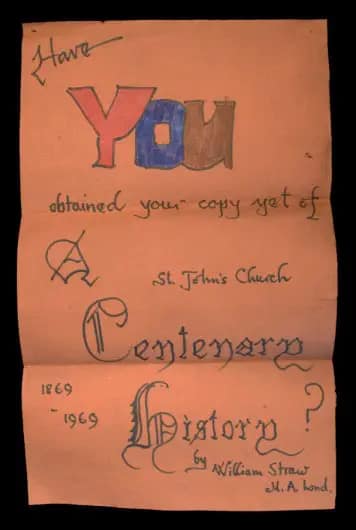 Have
YOU
obtained your copy yet of
A St. John's Church
Centenary
1869
- 1969
History?
by William Straw
M.A. Lond.